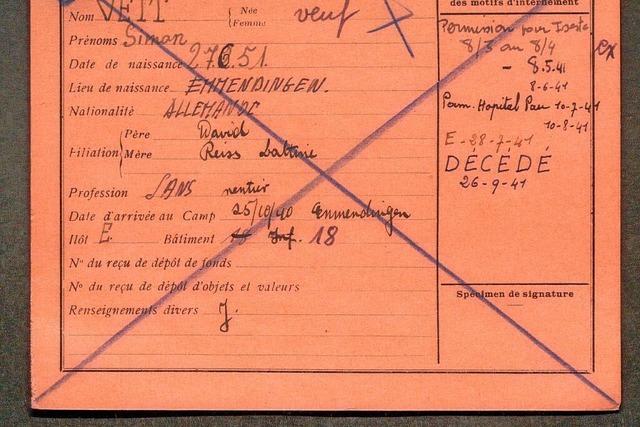 Nom VEIT
Née
Femme
veuf
Prénoms Simon
Date de naissance 27.6.51.
Lieu de naissance EMMENDINGEN.
Nationalité ALLEMANDE
Filiation
Père David
Mère Reiss
Profession SANS rentier
Date d'arrivée au Camp 25/10/40 Emmendingen
Ilôt E Bâtiment 18 Inf. 18
N° du reçu de dépôt de fonds
N° du reçu de dépôt d'objets et valeurs
Renseignements divers J.
des motifs d'internement
Permission pour
8/3 au 8/4
- 8.5.41
8-6-41
Perm. Hopital Pau 10-7-41
10-8-41
E - 28-7-41
DÉCÉDÉ
26-9-41
Spécimen de signature
ex